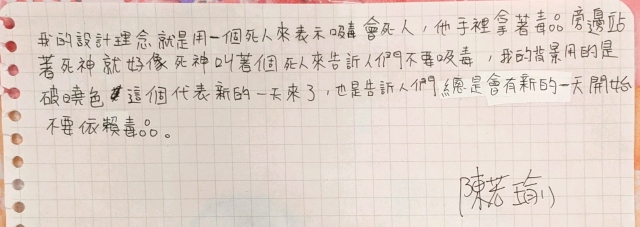 我的設計理念就是用一個死人來表示吸毒會死人，他手裡拿著毒品旁邊站
著死神就好像死神叫著個死人來告訴人們不要吸毒，我的背景用的是
破曉色這個代表新的一天來了，也是告訴人們總是會有新的一天開始
不要依賴毒品。
陳若瑜